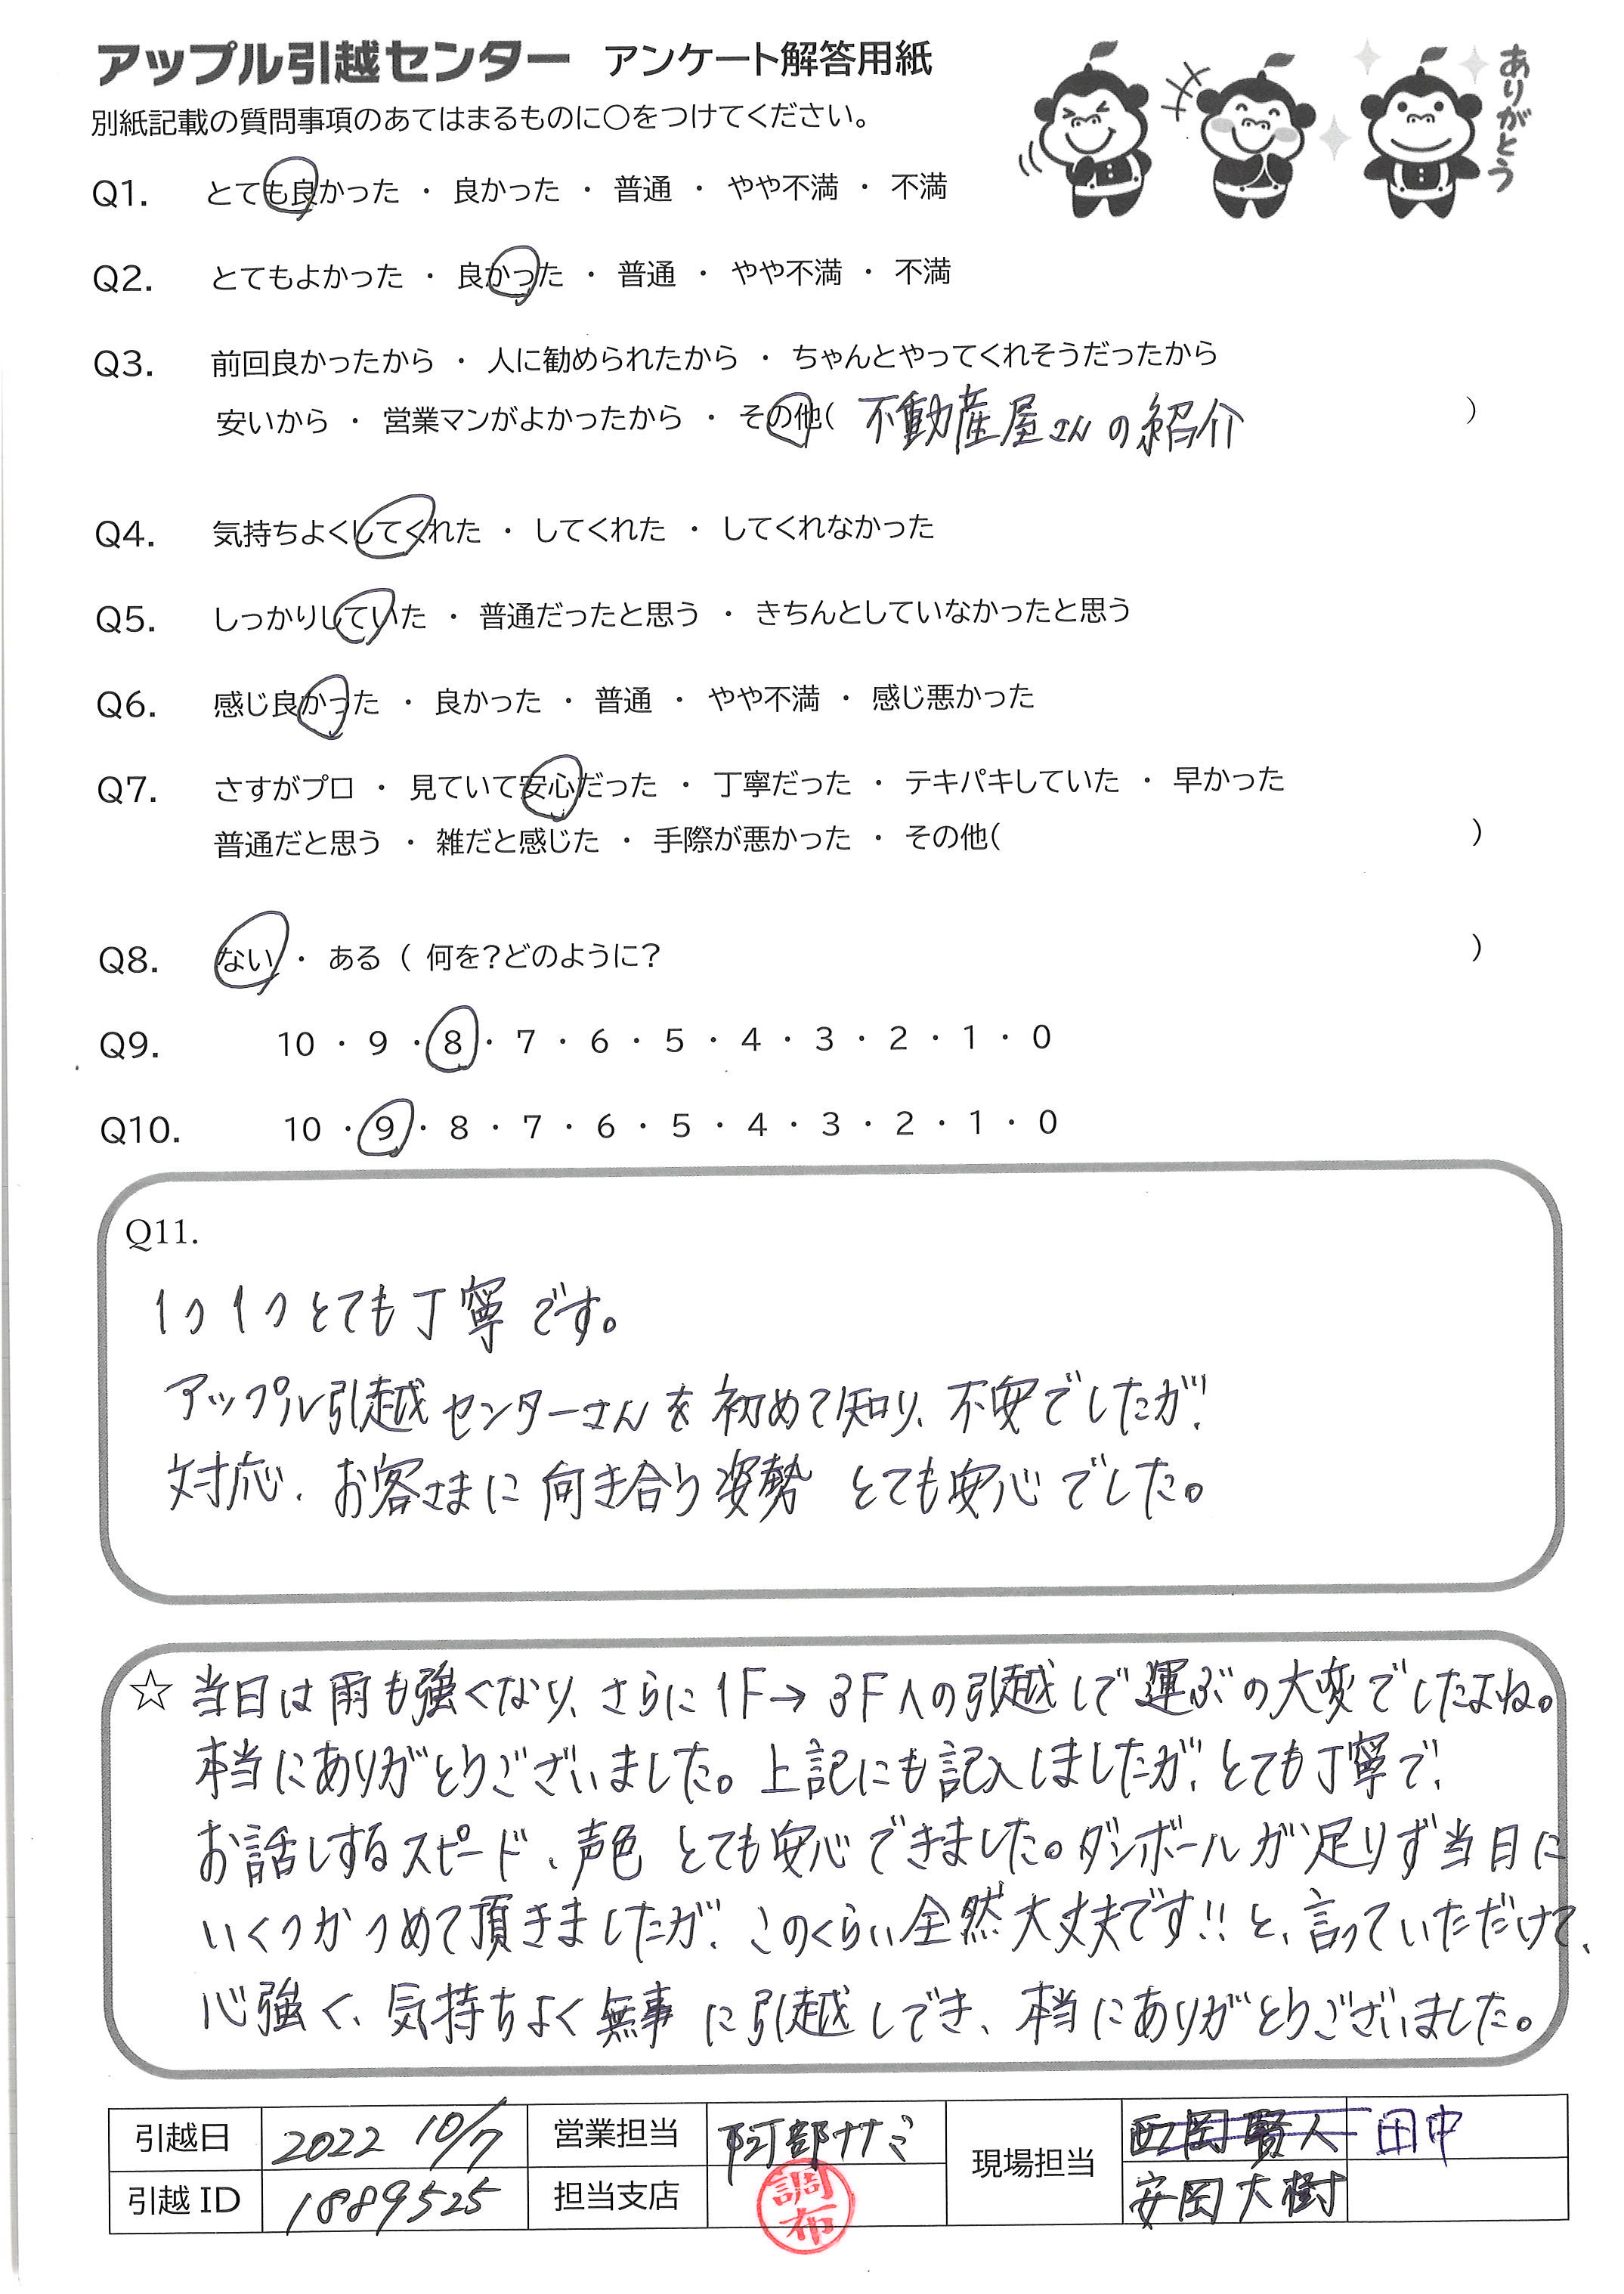 アップル引越センター アンケート解答用紙
ありがとう
別紙記載の質問事項のあてはまるものに〇をつけてください。
Q1. とても良かった ・ 良かった ・ 普通 ・ やや不満 ・ 不満
Q2. とてもよかった ・ 良かった ・ 普通 ・ やや不満 ・ 不満
Q3. 前回良かったから ・ 人に勧められたから ・ ちゃんとやってくれそうだったから
安いから ・ 営業マンがよかったから ・ その他( 不動産屋さんの紹介 )
Q4. 気持ちよくしてくれた ・ してくれた ・ してくれなかった
Q5. しっかりしていた ・ 普通だったと思う ・ きちんとしていなかったと思う
Q6. 感じ良かった ・ 良かった ・ 普通 ・ やや不満 ・ 感じ悪かった
Q7. さすがプロ ・ 見ていて安心だった ・ 丁寧だった ・ テキパキしていた ・ 早かった
普通だと思う ・ 雑だと感じた ・ 手際が悪かった ・ その他( )
Q8. ない ・ ある ( 何を?どのように? )
Q9. 10 ・ 9 ・ 8 ・ 7 ・ 6 ・ 5 ・ 4 ・ 3 ・ 2 ・ 1 ・ 0
Q10. 10 ・ 9 ・ 8 ・ 7 ・ 6 ・ 5 ・ 4 ・ 3 ・ 2 ・ 1 ・ 0
Q11.
1つ1つとても丁寧です。
アップル引越センターさんを初めて知り、不安でしたが、
対応、お客さまに向き合う姿勢 とても安心でした。
☆ 当日は雨も強くなり、さらに1F→3Fへの引越しで運ぶの大変でしたよね。
本当にありがとうございました。上記にも記入しましたが、とても丁寧で、
お話しするスピード、声色 とても安心できました。ダンボールが足りず当日に
いくつかつめて頂きましたが、このくらい全然大丈夫です!!と、言っていただけて、
心強く、気持ちよく無事に引越しでき、本当にありがとうございました。
引越日 2022 10/7 営業担当 阿部ナナミ 現場担当 西岡賢人 田中
引越ID 1889525 担当支店 調布 安岡大樹